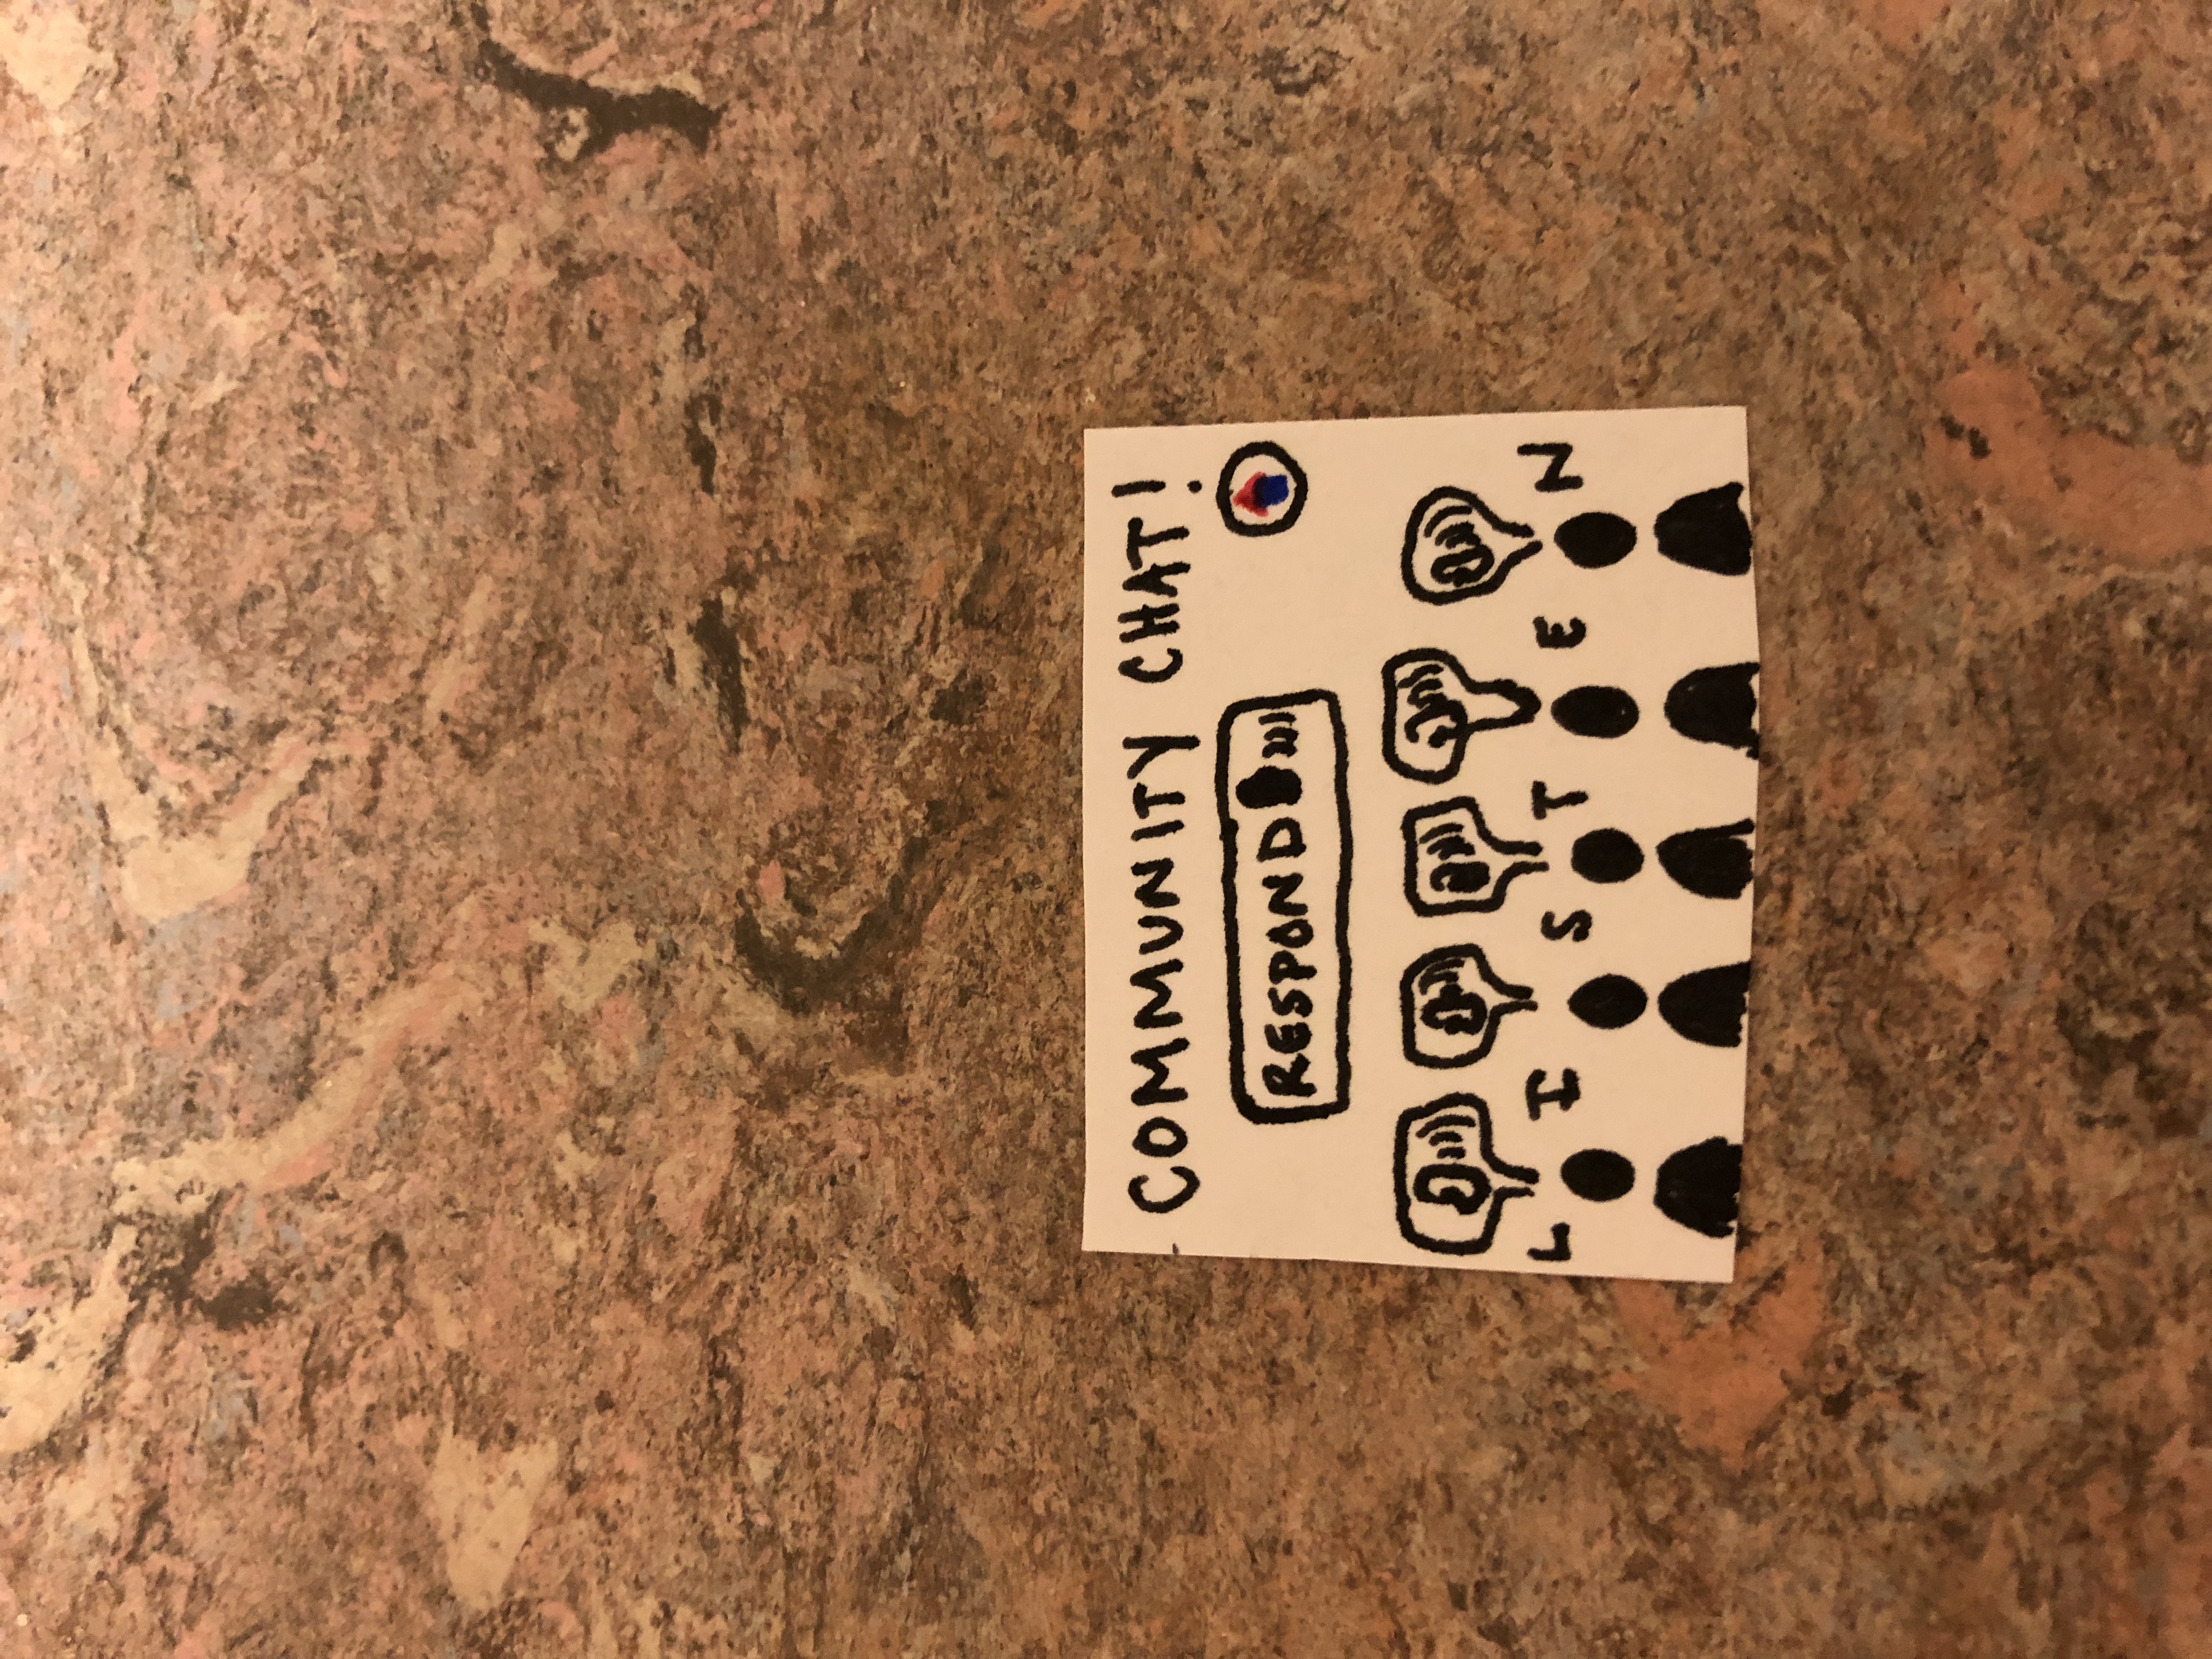 COMMUNITY CHAT!
RESPOND
LISTEN